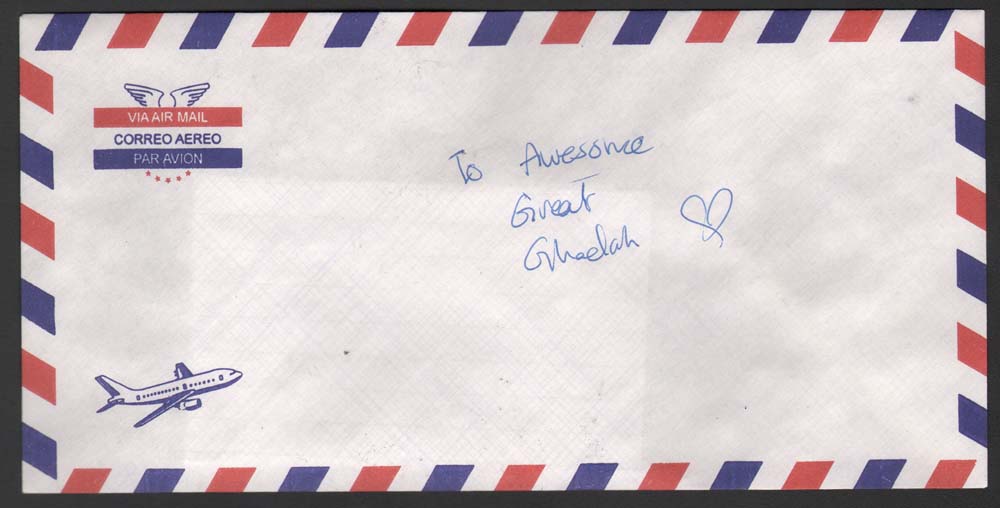 VIA AIR MAIL
CORREO AEREO
PAR AVION
To Awesome
Great
Ghadah